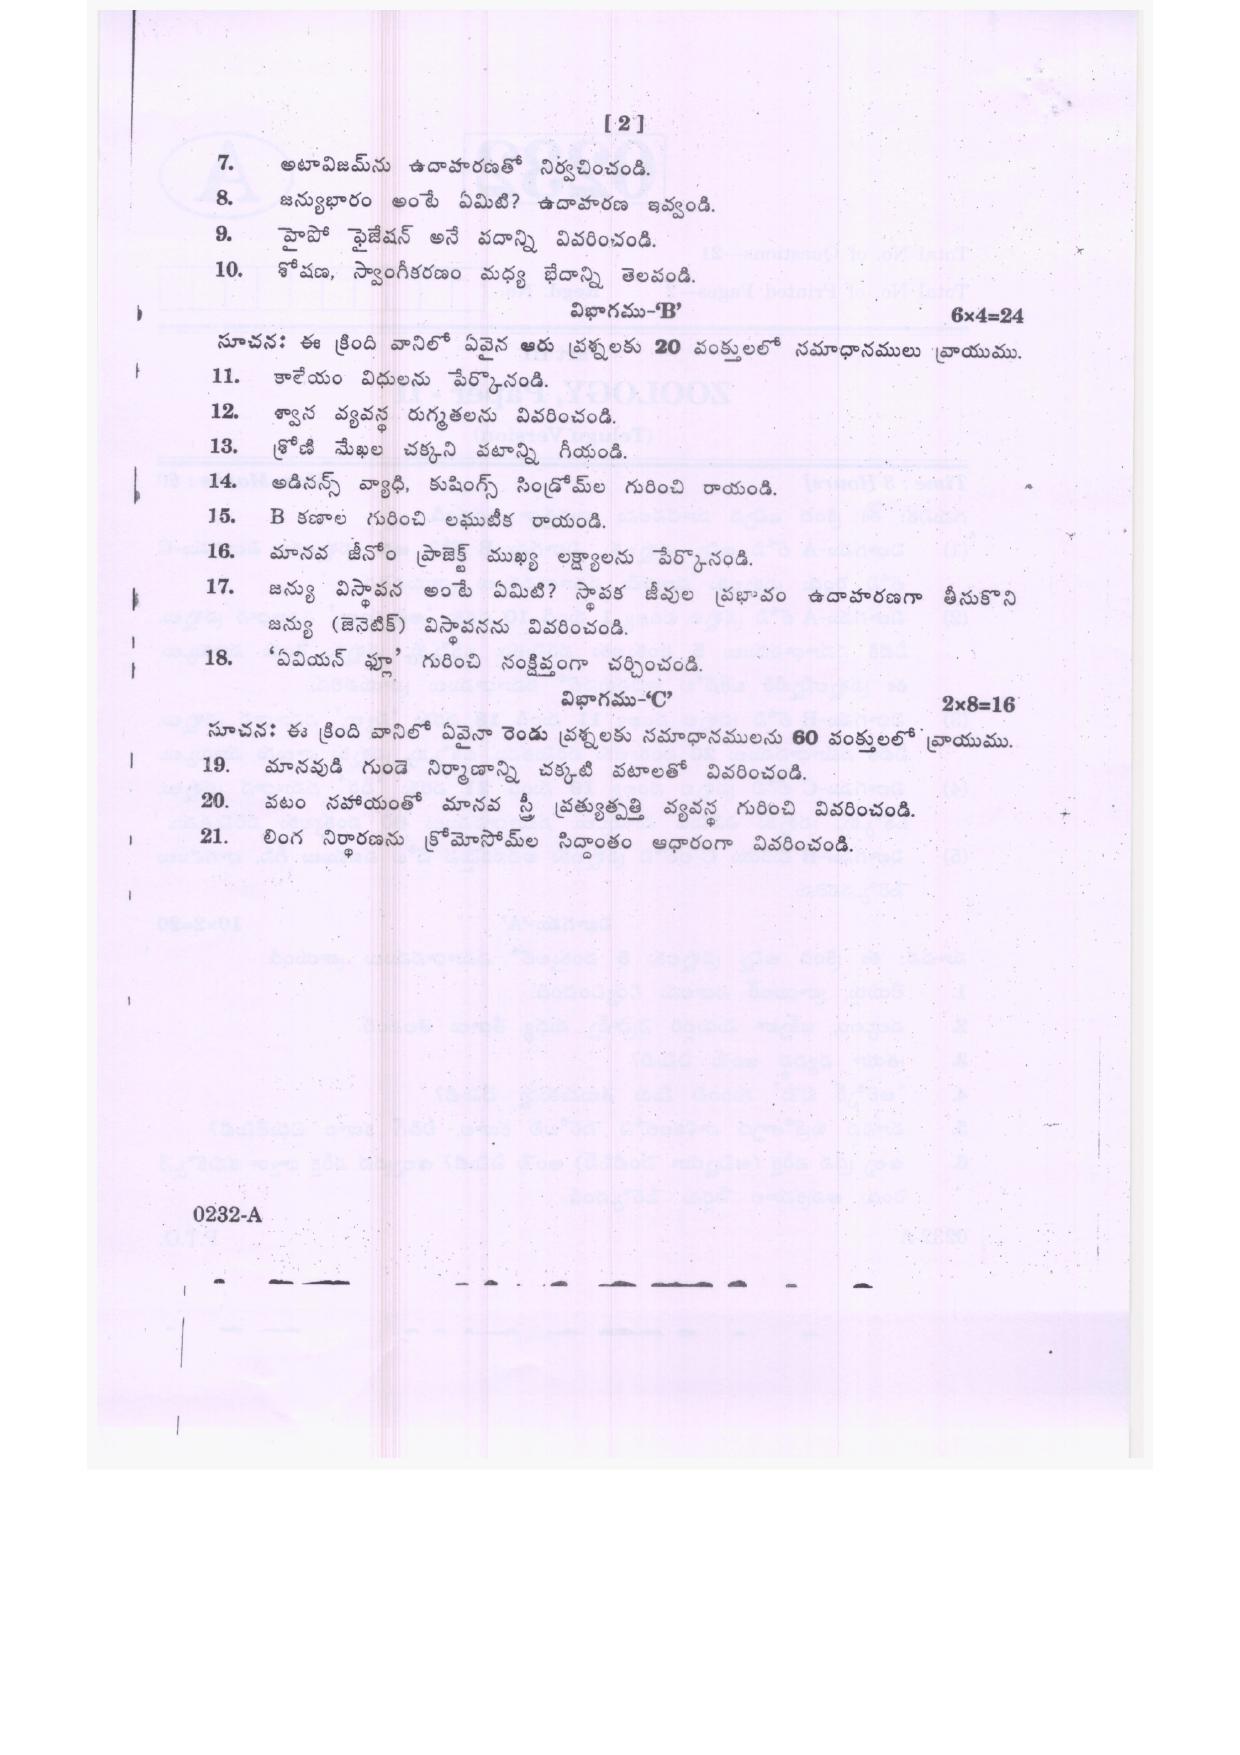 [ 2 ]
7. అటావిజమ్‌ను ఉదాహరణతో నిర్వచించండి.
8. జన్యుభారం అంటే ఏమిటి? ఉదాహరణ ఇవ్వండి.
9. హైపో ఫైజేషన్ అనే పదాన్ని వివరించండి.
10. శోషణ, స్వాంగీకరణం మధ్య భేదాన్ని తెలపండి.
విభాగము-‘B’ 6×4=24
సూచన: ఈ క్రింది వానిలో ఏవైన ఆరు ప్రశ్నలకు 20 పంక్తులలో సమాధానములు వ్రాయుము.
11. కాలేయం విధులను పేర్కొనండి.
12. శ్వాస వ్యవస్థ రుగ్మతలను వివరించండి.
13. శ్రోణి మేఖల చక్కని పటాన్ని గీయండి.
14. అడిసన్స్ వ్యాధి, కుషింగ్స్ సిండ్రోమ్‌ల గురించి రాయండి.
15. B కణాల గురించి లఘుటీక రాయండి.
16. మానవ జీనోం ప్రాజెక్ట్ ముఖ్య లక్ష్యాలను పేర్కొనండి.
17. జన్యు విస్థాపన అంటే ఏమిటి? స్థాపక జీవుల ప్రభావం ఉదాహరణగా తీసుకొని
జన్యు (జెనెటిక్) విస్థాపనను వివరించండి.
18. ‘ఏవియన్ ఫ్లూ’ గురించి సంక్షిప్తంగా చర్చించండి.
విభాగము-‘C’ 2×8=16
సూచన: ఈ క్రింది వానిలో ఏవైనా రెండు ప్రశ్నలకు సమాధానములను 60 పంక్తులలో వ్రాయుము.
19. మానవుడి గుండె నిర్మాణాన్ని చక్కటి పటాలతో వివరించండి.
20. పటం సహాయంతో మానవ స్త్రీ ప్రత్యుత్పత్తి వ్యవస్థ గురించి వివరించండి.
21. లింగ నిర్ధారణను క్రోమోసోమ్‌ల సిద్ధాంతం ఆధారంగా వివరించండి.
0232-A